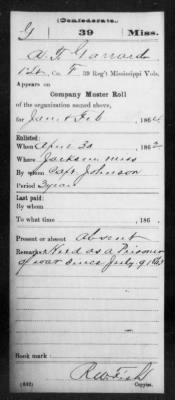 (Confederate.)
G 39 Miss.
A. F. Garrard
Co. F, 39 Reg't Mississippi Vols.
Appears on
Company Muster Roll
of the organization named above,
for Jan & Feb, 1864
Enlisted:
When April 30, 1862
Where Jackson Miss
By whom Capt. Johnson
Period 3 years
Last paid:
By whom
To what time , 186 .
Present or absent Absent
Remarks: Held as a Prisoner
of war since July 9 1863
Book mark:
(642) Copyist.